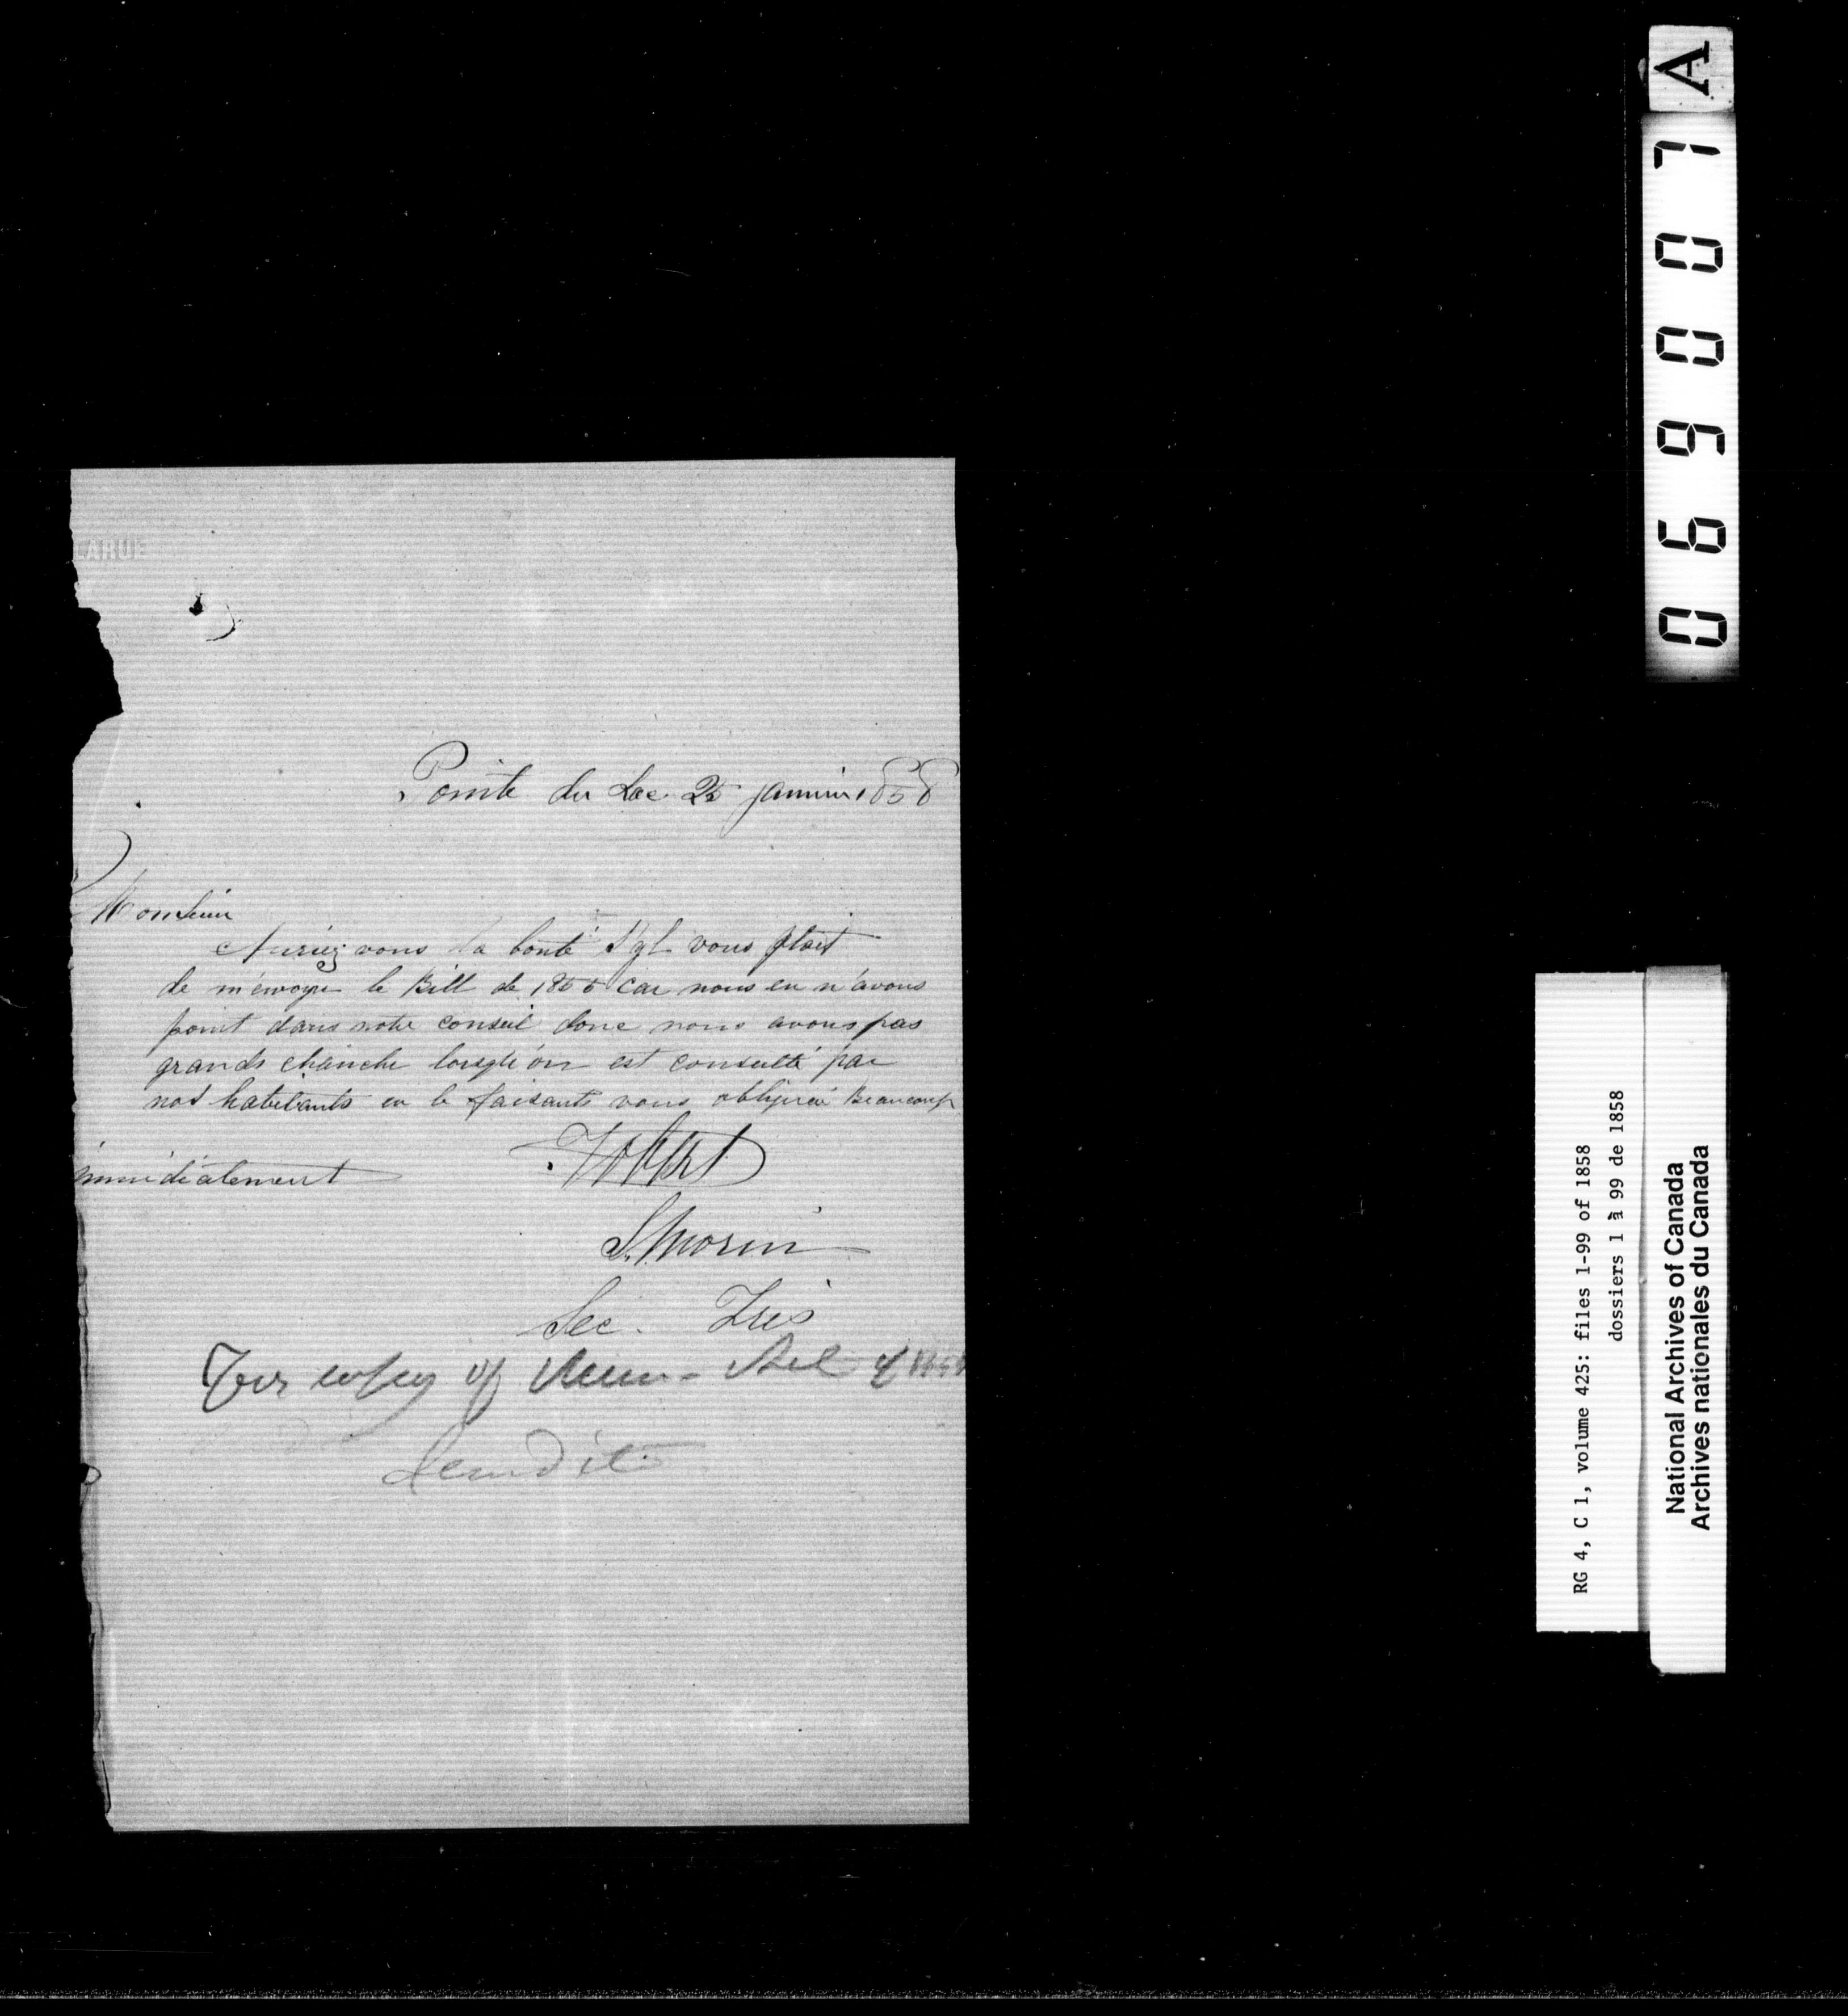 LARUE
Pointe du Lac 25 janvier 1858
Monsieur
Auriez vous la bonté s'yl vous plait
de m'envoyer le Bill de 1855 car nous en n'avons
point dans notre conseil donc nous avons pas
grands chanche lorsqu'on est consulté par
nos habitants en le faisants vous obligerai Beaucoup
immédiatement
S. Morin
Sec. Trés
For copy of Mun. Act of 1855
Send it
A
069007
RG 4, C 1, volume 425: files 1-99 of 1858
dossiers 1 à 99 de 1858
National Archives of Canada
Archives nationales du Canada